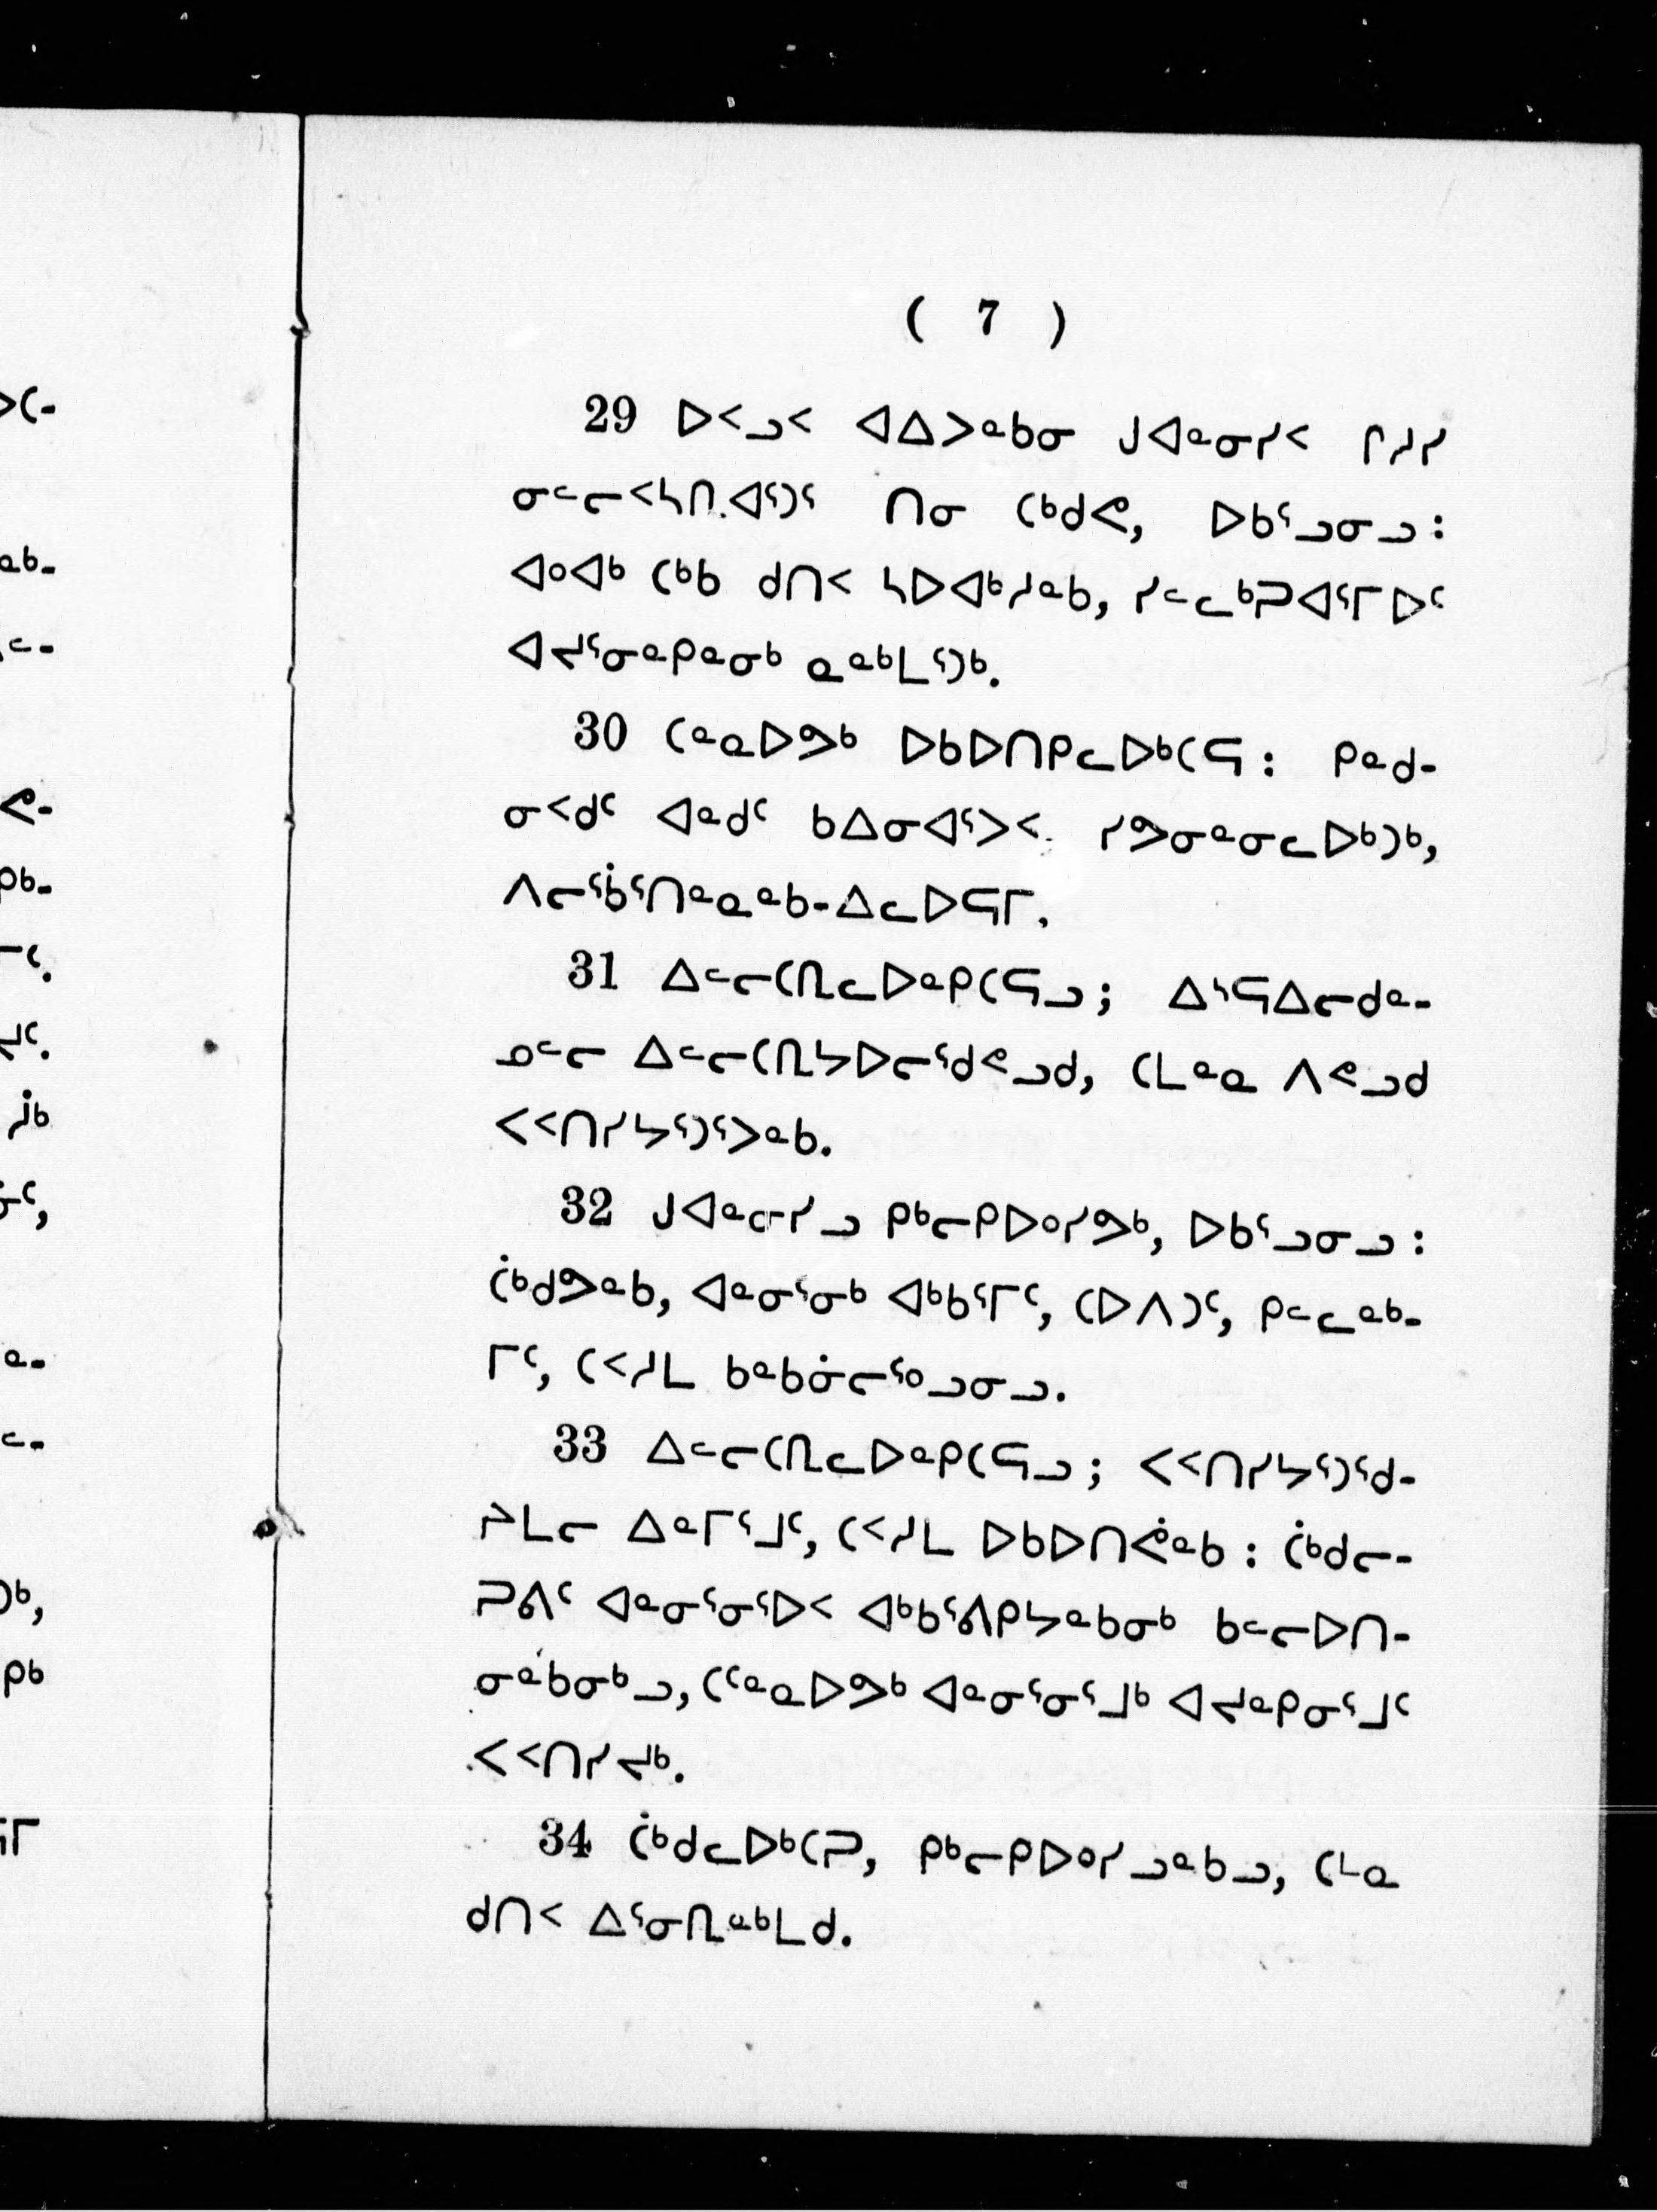 ( 7 )
29 ᐅᑉᓗᑉ ᐊᐃᐳᓐᑲᓂ ᒍᐊᓐᓂᓯᑉ ᒋᓱᓯ
ᓂᓪᓕᑉᓴᑎᐊᕐᑐᕐ ᑎᓂ ᑕᒃᑯᕙ, ᐅᑲᕐᓗᓂᓗ:
ᐊᐤᐊᒃ ᑕᒃᑲ ᑯᑎᑉ ᓴᐅᐊᒃᓱᓐᑲ, ᓯᓪᓚᒃᑐᐊᕐᒥᐅᑦ
ᐊᔪᕐᓂᓐᑭᓐᓂᒃ ᓇᓐᒃᒪᕐᑐᒃ.
30 ᑕᓐᓇᐅᕗᒃ ᐅᑲᐅᑎᑭᓚᐅᒃᑕᕋ: ᑭᓐᑯ-
ᓂᑉᑯᑦ ᐊᓐᑯᑦ ᑲᐃᓂᐊᕐᐳᑉ ᓯᕗᓂᓐᓂᓚᐅᒃᑐᒃ,
ᐱᓕᕐᑳᕐᑎᓐᓇᓐᑲ-ᐃᓚᐅᕋᒥ.
31 ᐃᓪᓕᑕᕆᓚᐅᓐᑭᑕᕋᓗ; ᐃᔅᕋᐃᓕᑯᓐ-
ᓄᓪᓕ ᐃᓪᓕᑕᕆᔭᐅᓕᕐᑯᕝᓗᑯ, ᑕᒪᓐᓇ ᐱᕝᓗᑯ
ᐸᑉᑎᓯᔭᕐᑐᕐᐳᓐᑲ.
32 ᒍᐊᓐᓂᓯᓗ ᑭᒃᓕᑭᐅᐤᓯᕗᒃ, ᐅᑲᕐᓗᓂᓗ:
ᑖᒃᑯᕗᓐᑲ, ᐊᓐᓂᕐᓂᒃ ᐊᒃᑲᕐᒥᑦ, ᑕᐅᐱᑐᑦ, ᑭᓪᓚᓐᒃ-
ᒥᑦ, ᑕᑉᓱᒪ ᑲᓐᑲᓃᓕᕐᐤᓗᓂᓗ.
33 ᐃᓪᓕᑕᕆᓚᐅᓐᑭᑕᕋᓗ; ᐸᑉᑎᓯᔭᕐᑐᕐᑯ-
ᔨᒪᓕ ᐃᓐᒥᕐᒧᑦ, ᑕᑉᓱᒪ ᐅᑲᐅᑎᕚᓐᑲ: ᑖᒃᑯᓕ-
ᑐᕕᑦ ᐊᓐᓂᕐᓂᕐᐅᑉ ᐊᒃᑲᕐᕕᑭᔭᓐᑲᓂᒃ ᑲᓪᓕᐅᑎ-
ᓂᓐᑲᓂᒃᓗ, ᑕᕐᓐᓇᐅᕗᒃ ᐊᓐᓂᕐᓂᕐᒧᒃ ᐊᔪᓐᑭᓂᕐᒧᑦ
ᐸᑉᑎᓯᔪᒃ.
34 ᑖᒃᑯᓚᐅᒃᑕᑐ, ᑭᒃᓕᑭᐅᐤᓯᓗᓐᑲᓗ, ᑕᒻᓇ
ᑯᑎᑉ ᐃᕐᓂᕆᓐᒃᒪᑯ.